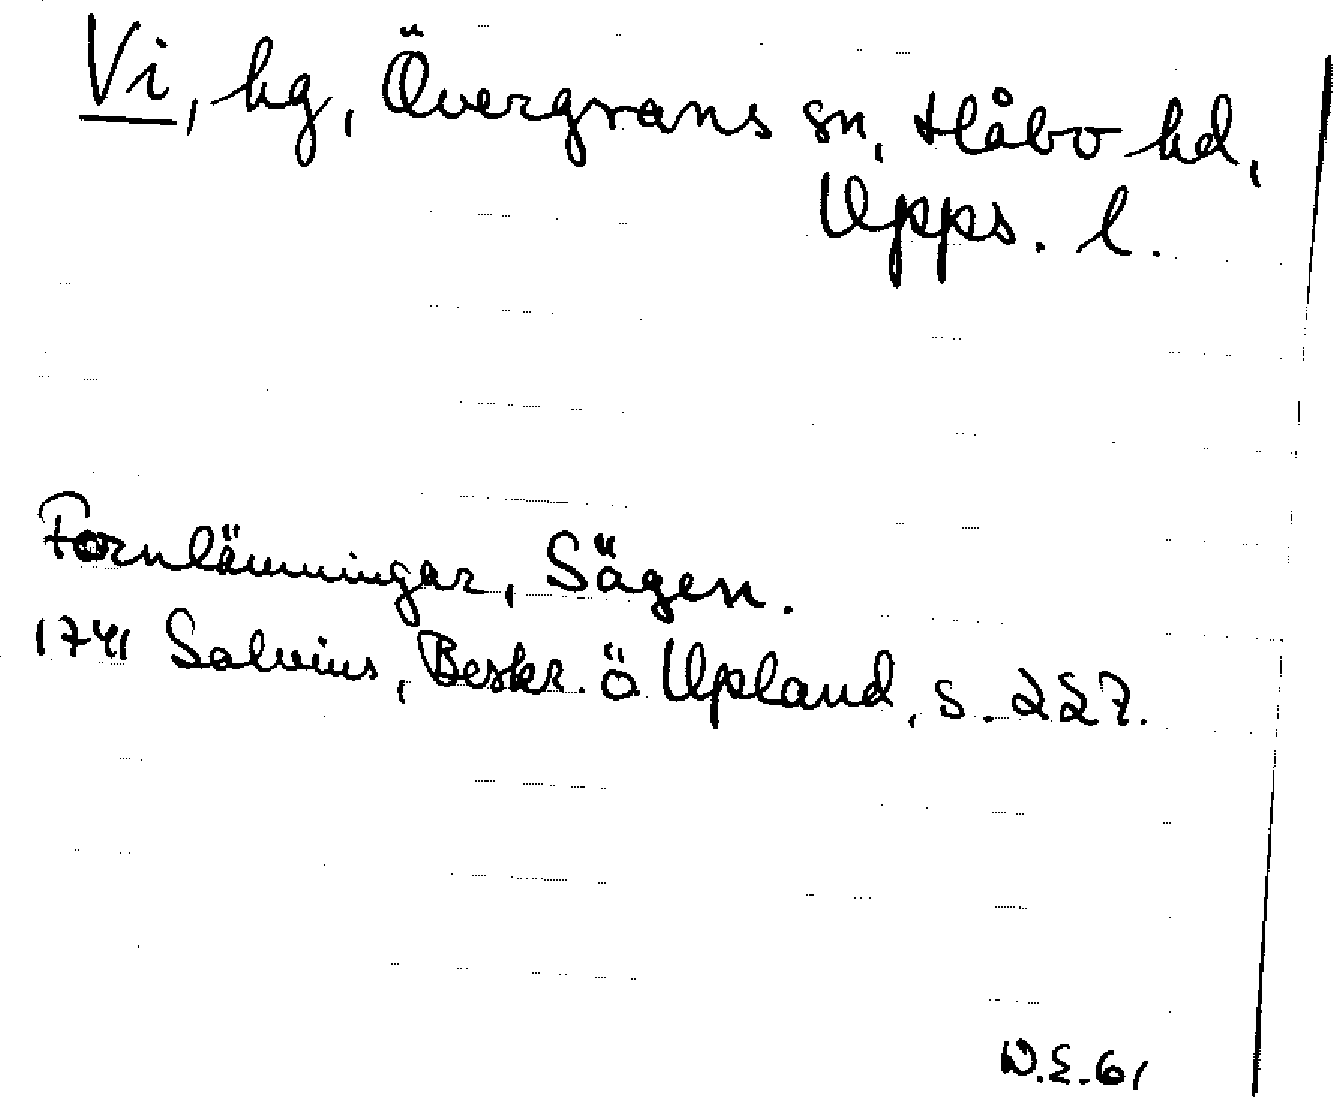 Vi, hg, Övergrans sn, Håbo hd,
Upps. l.
Fornlämningar, Sägen.
1741 Salvius, Beskr. ö Upland, s. 227.
W.E. 61